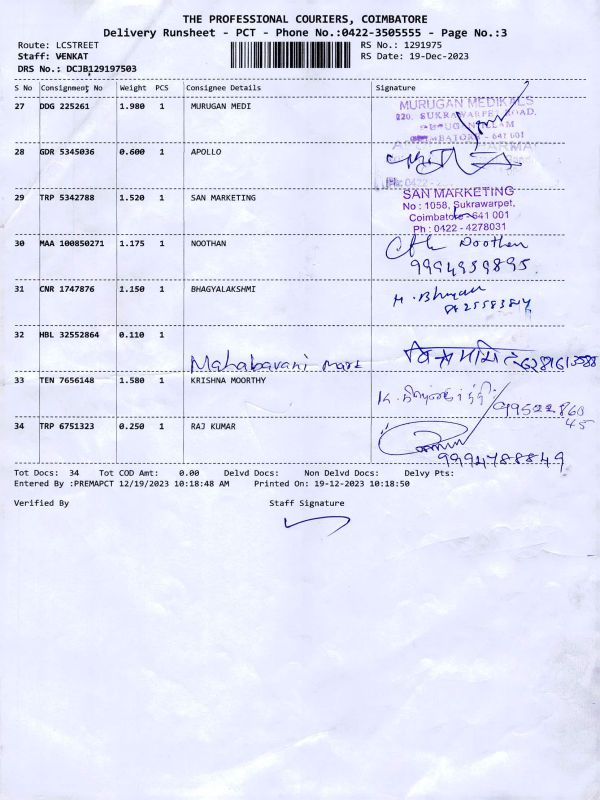 THE PROFESSIONAL COURIERS, COIMBATORE
Delivery Runsheet - PCT - Phone No.:0422-3505555 - Page No.:3
Route: LCSTREET RS No.: 1291975
Staff: VENKAT RS Date: 19-Dec-2023
DRS No.: DCJB129197503
S No Consignment No Weight PCS Consignee Details Signature
27 DDG 225261 1.980 1 MURUGAN MEDI
MURUGAN MEDIKALS
220, SUKRAWARPET ROAD,
28 GDR 5345036 0.600 1 APOLLO
29 TRP 5342788 1.520 1 SAN MARKETING
SAN MARKETING
No : 1058, Sukrawarpet,
Coimbatore-641 001
Ph : 0422 - 4278031
30 MAA 100850271 1.175 1 NOOTHAN
Noothan
9994959895
31 CNR 1747876 1.150 1 BHAGYALAKSHMI
32 HBL 32552864 0.110 1
Mahabavani mart
33 TEN 7656148 1.580 1 KRISHNA MOORTHY
99522860
45
34 TRP 6751323 0.250 1 RAJ KUMAR
9994788849
Tot Docs: 34 Tot COD Amt: 0.00 Delvd Docs: Non Delvd Docs: Delvy Pts:
Entered By :PREMAPCT 12/19/2023 10:18:48 AM Printed On: 19-12-2023 10:18:50
Verified By Staff Signature